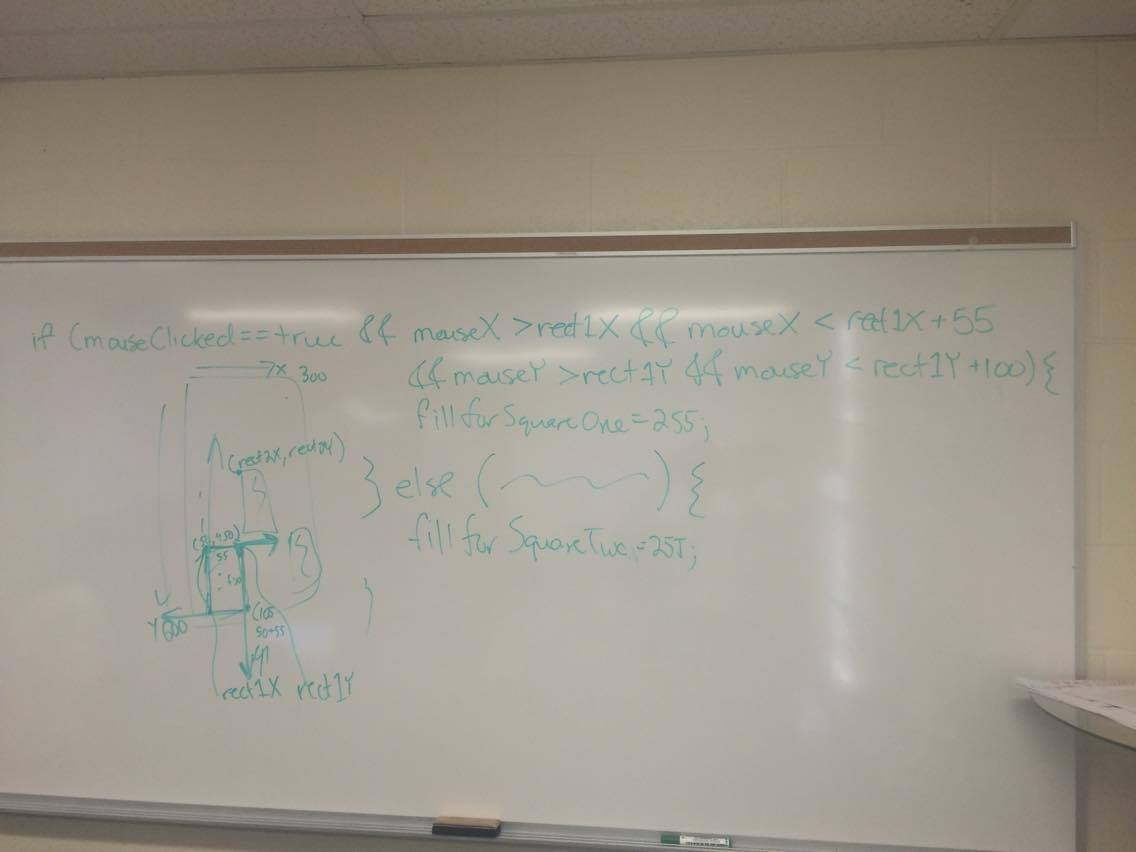 if (mouseClicked==true && mouseX >rect1X && mouseX < rect1X+55
&& mouseY >rect1Y && mouseY < rect1Y+100){
fillforSquareOne=255;
} else ( ) {
fillforSquareTwo=255;
}
X 300
(rect2X, rect2Y)
55
Y
(105
50+55
rect1X rect1Y